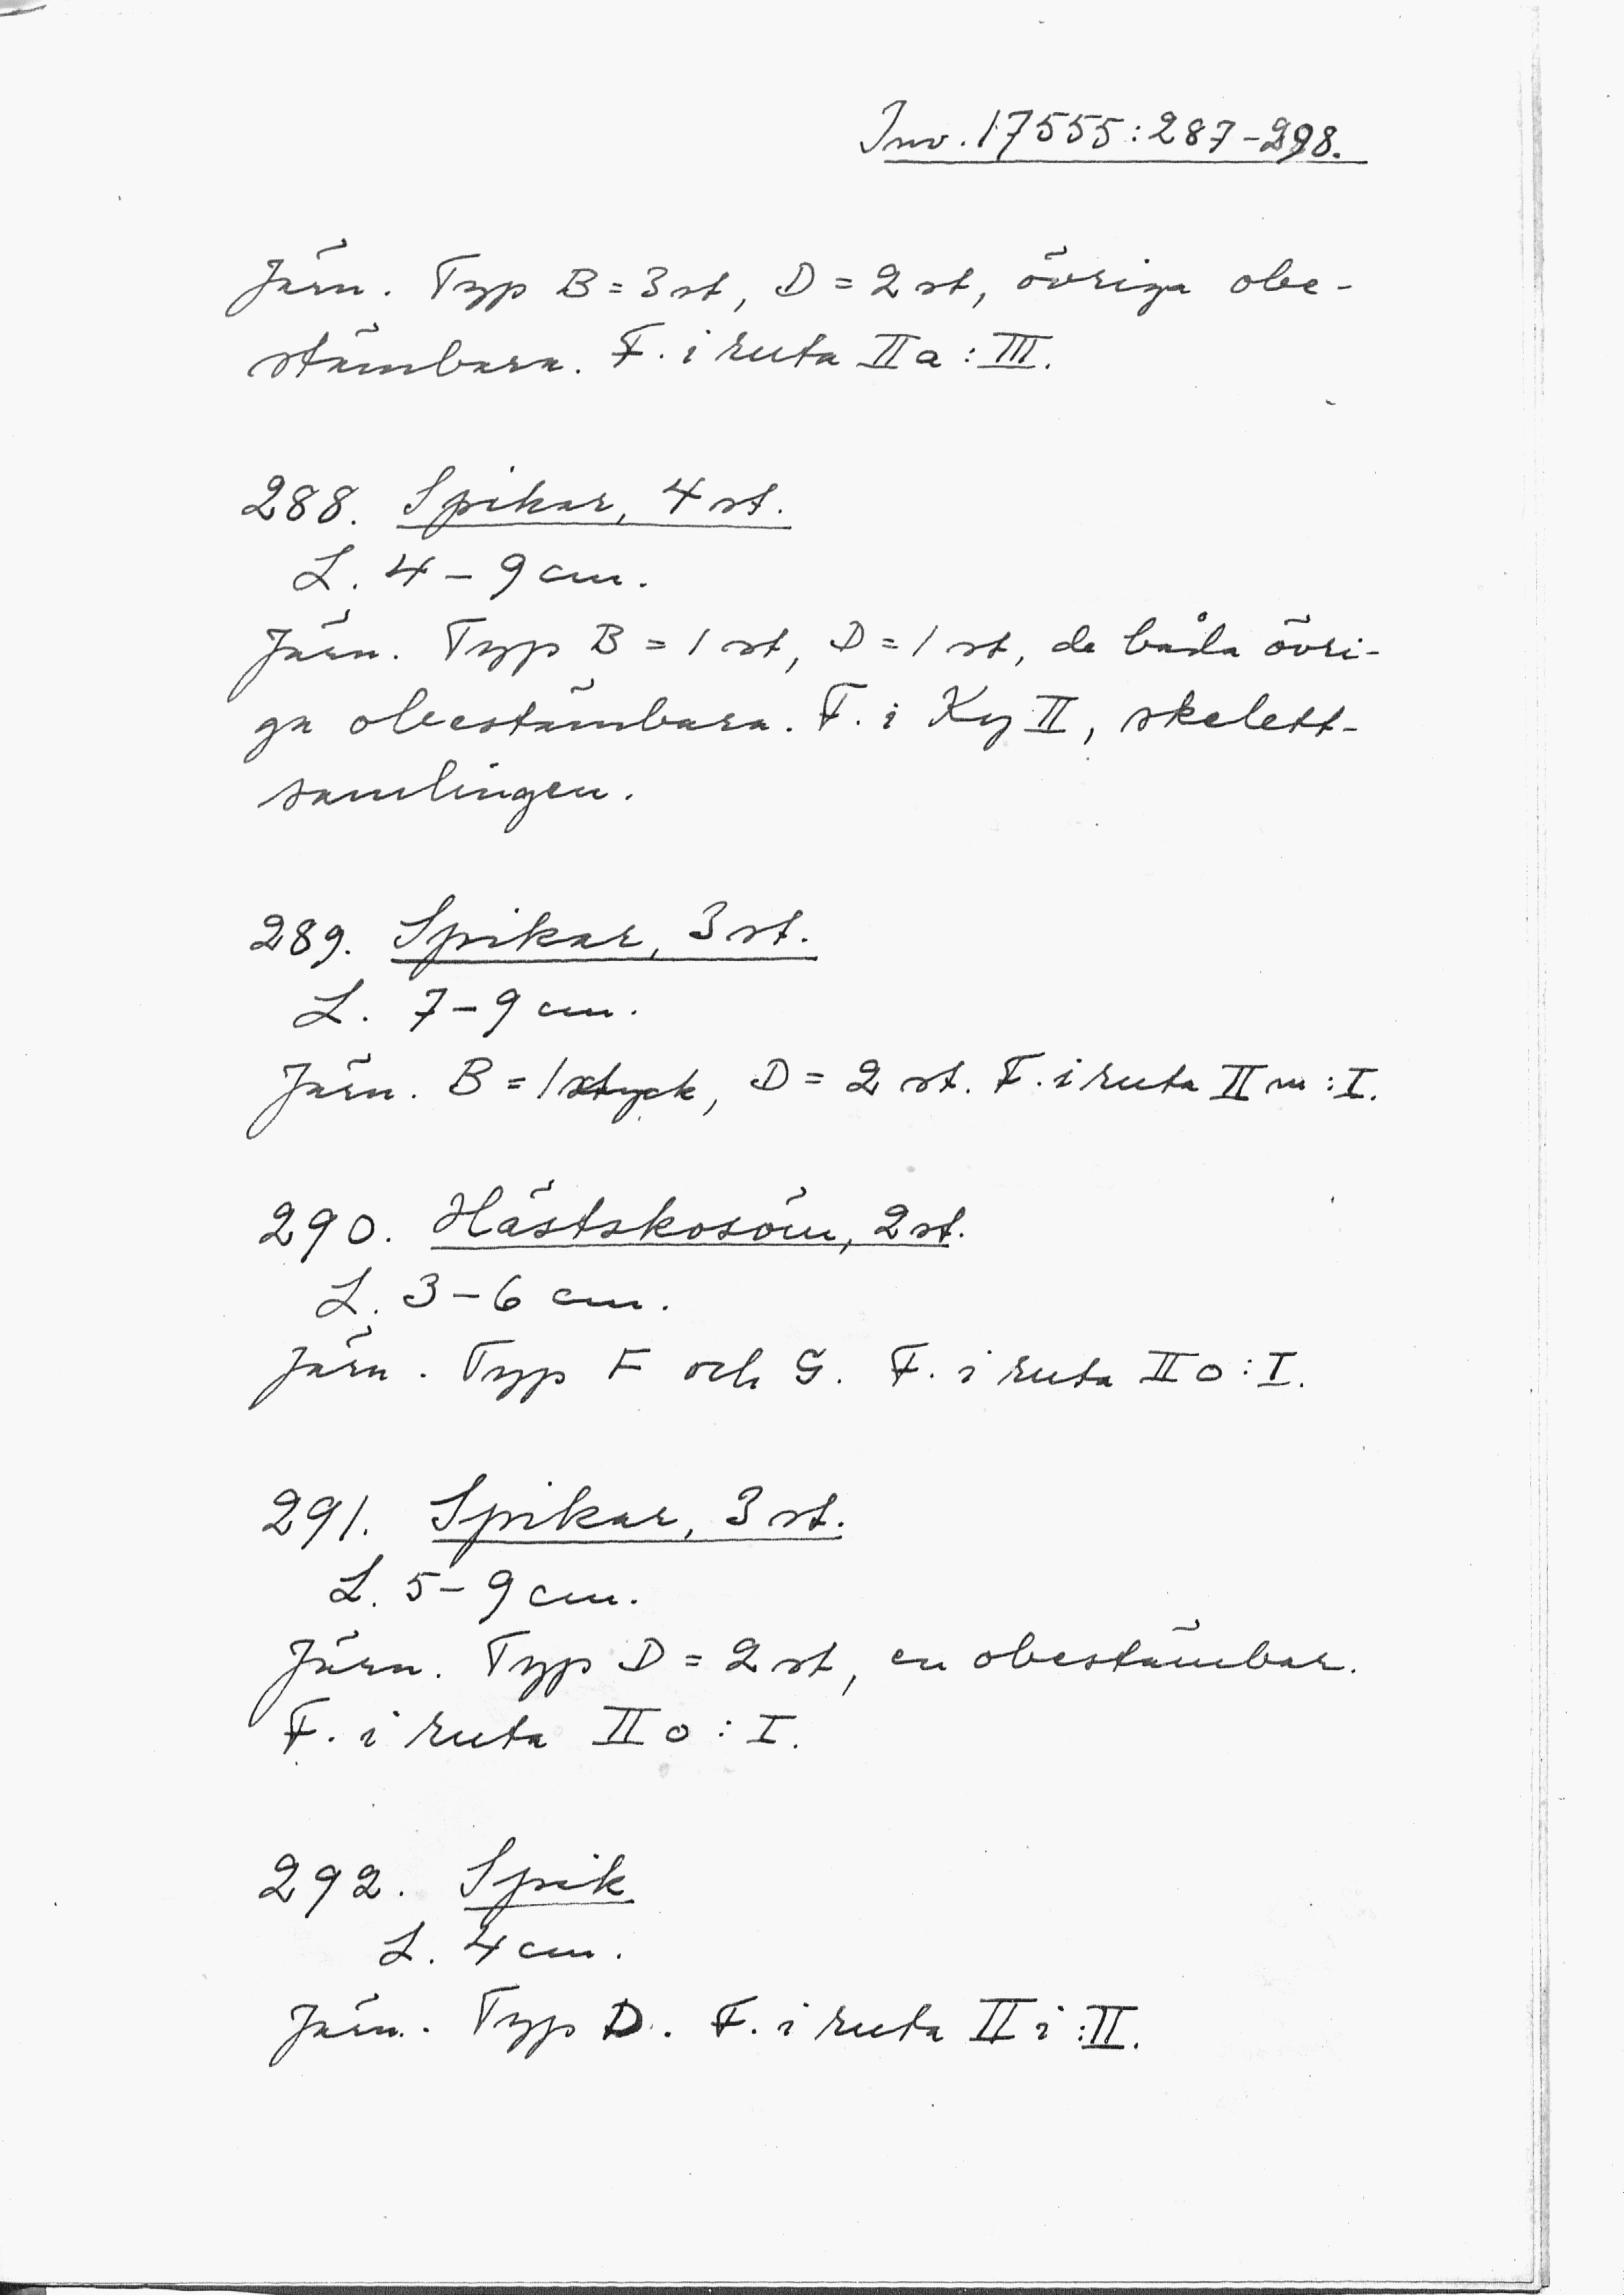 Inv. 17555:287-298.
Järn. Typ B=3 st, D=2 st, övriga obe-
stämbara. F. i ruta II a : III.
288. Spikar, 4 st.
L. 4-9 cm.
Järn. Typ B=1 st, D=1 st, de båda övri-
ga obestämbara. F. i Ky II, skelett-
samlingen.
289. Spikar, 3 st.
L. 7-9 cm.
Järn. B=1 styck, D=2 st. F. i ruta II m : I.
290. Hästskosöm, 2 st.
L. 3-6 cm.
Järn. Typ F och G. F. i ruta II o : I.
291. Spikar, 3 st.
L. 5-9 cm.
Järn. Typ D=2 st, en obestämbar.
F. i ruta II o : I.
292. Spik
L. 4 cm.
Järn. Typ D. F. i ruta II i : II.